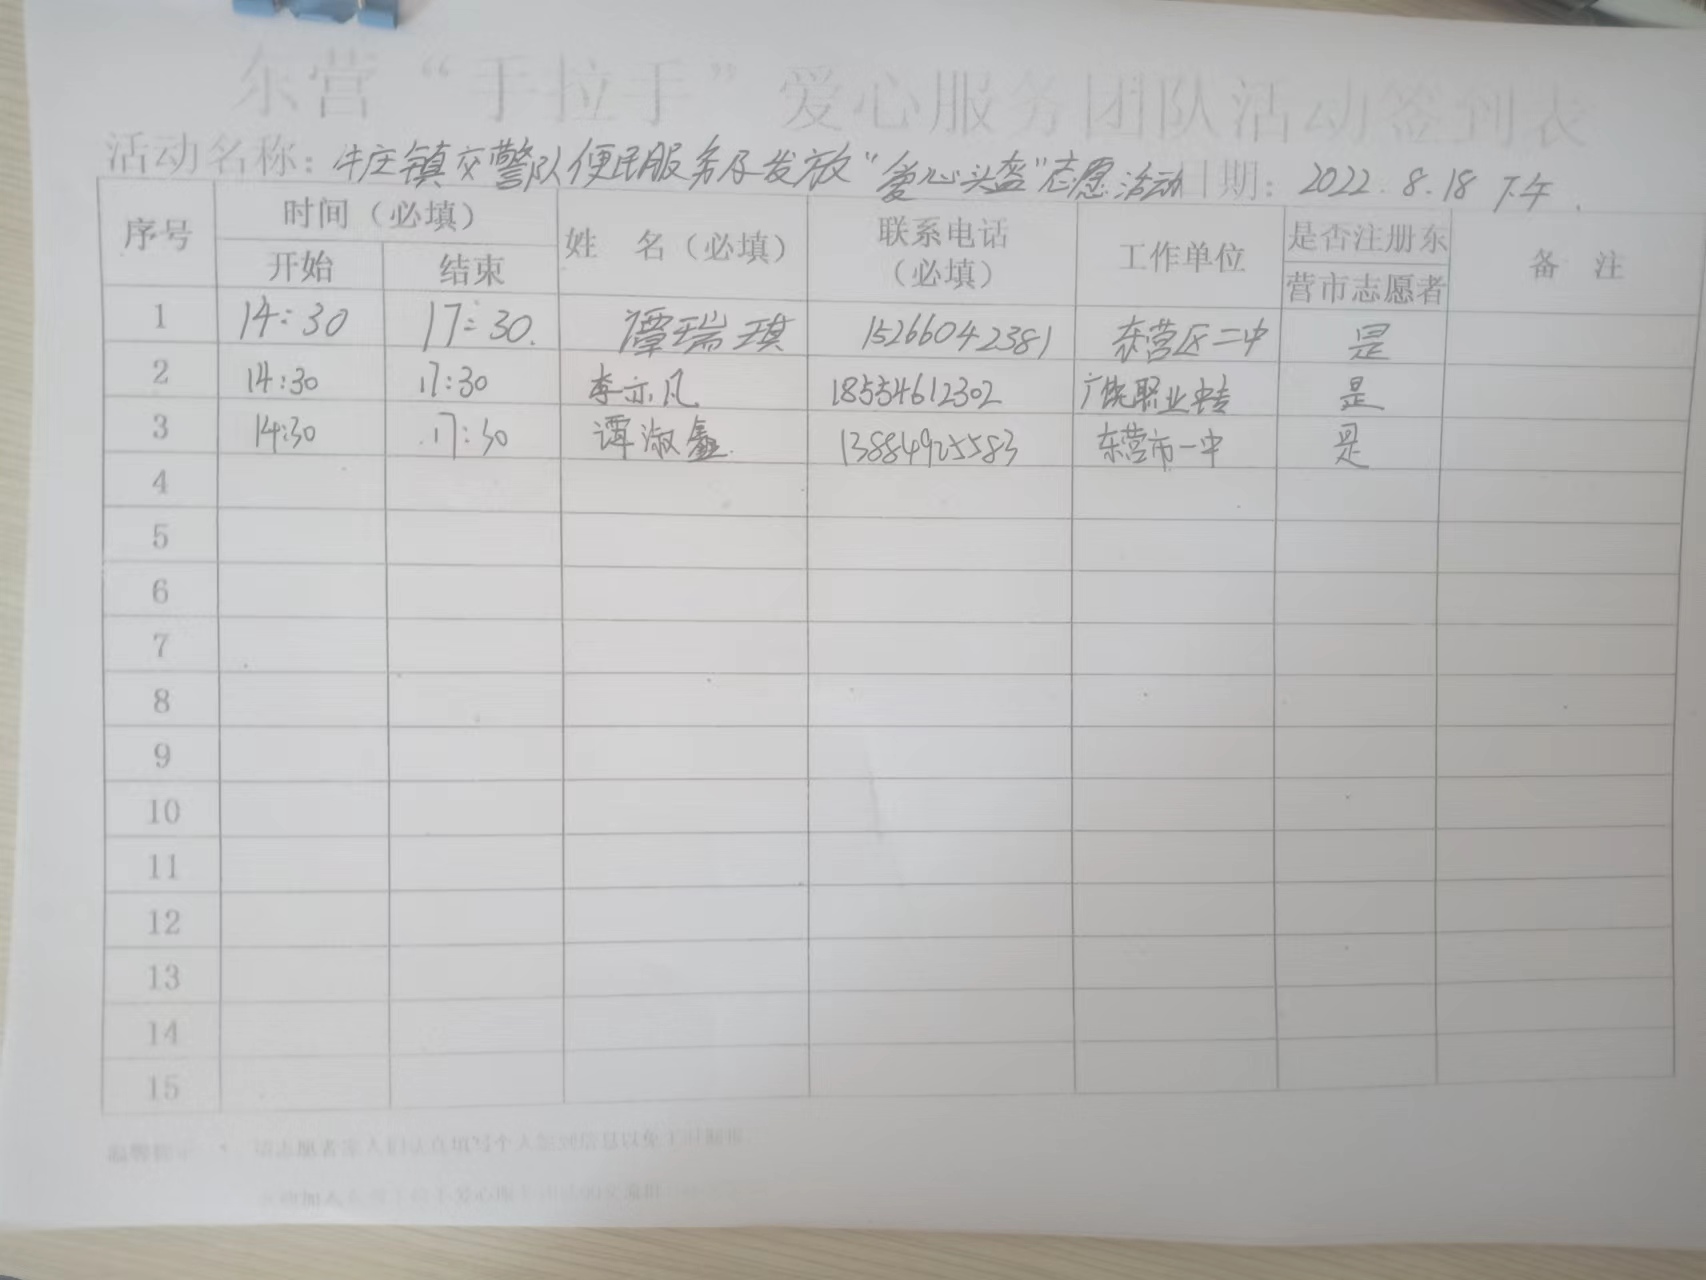 东营“手拉手”爱心服务团队活动签到表
活动名称：牛庄镇交警队便民服务及发放“爱心头盔”志愿活动 日期：2022.8.18 下午.
序号 时间（必填） 姓 名（必填） 联系电话（必填） 工作单位 是否注册东营市志愿者 备 注
开始 结束
1 14:30 17:30. 谭瑞琪 15266042381 东营区二中 是
2 14:30 17:30 李亦凡 18554612302 广饶职业中专 是
3 14:30 17:30 谭淑鑫 13884925583 东营市一中 是
4
5
6
7
8
9
10
11
12
13
14
15